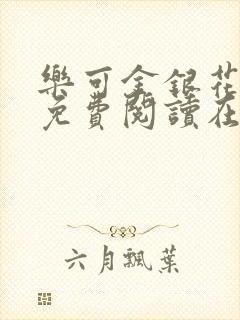 樂可金銀花
免費閱讀在
六月飄葉